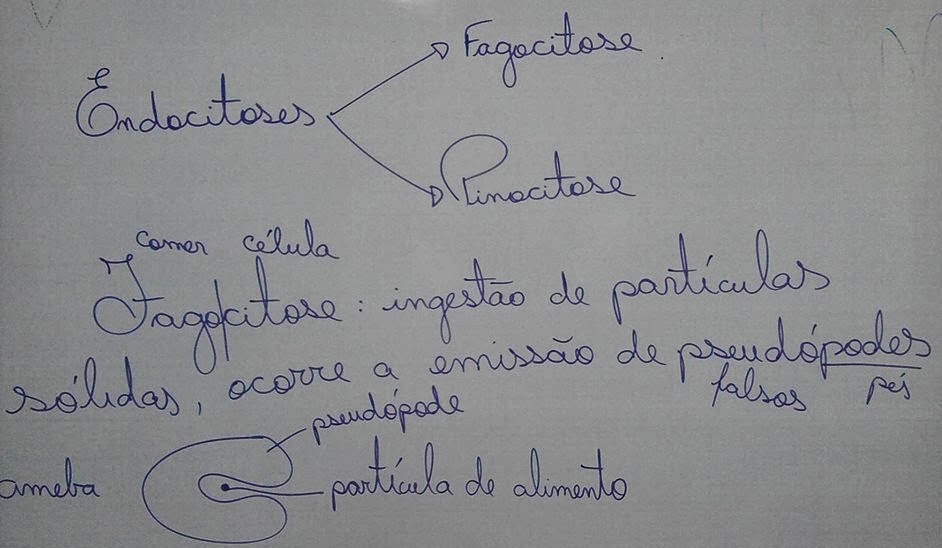 Fagocitose
Endocitoses
Pinocitose
comer célula
Fagocitose: ingestão de partículas
sólidas, ocorre a emissão de pseudópodes
falsos pés
pseudópode
ameba
partícula de alimento